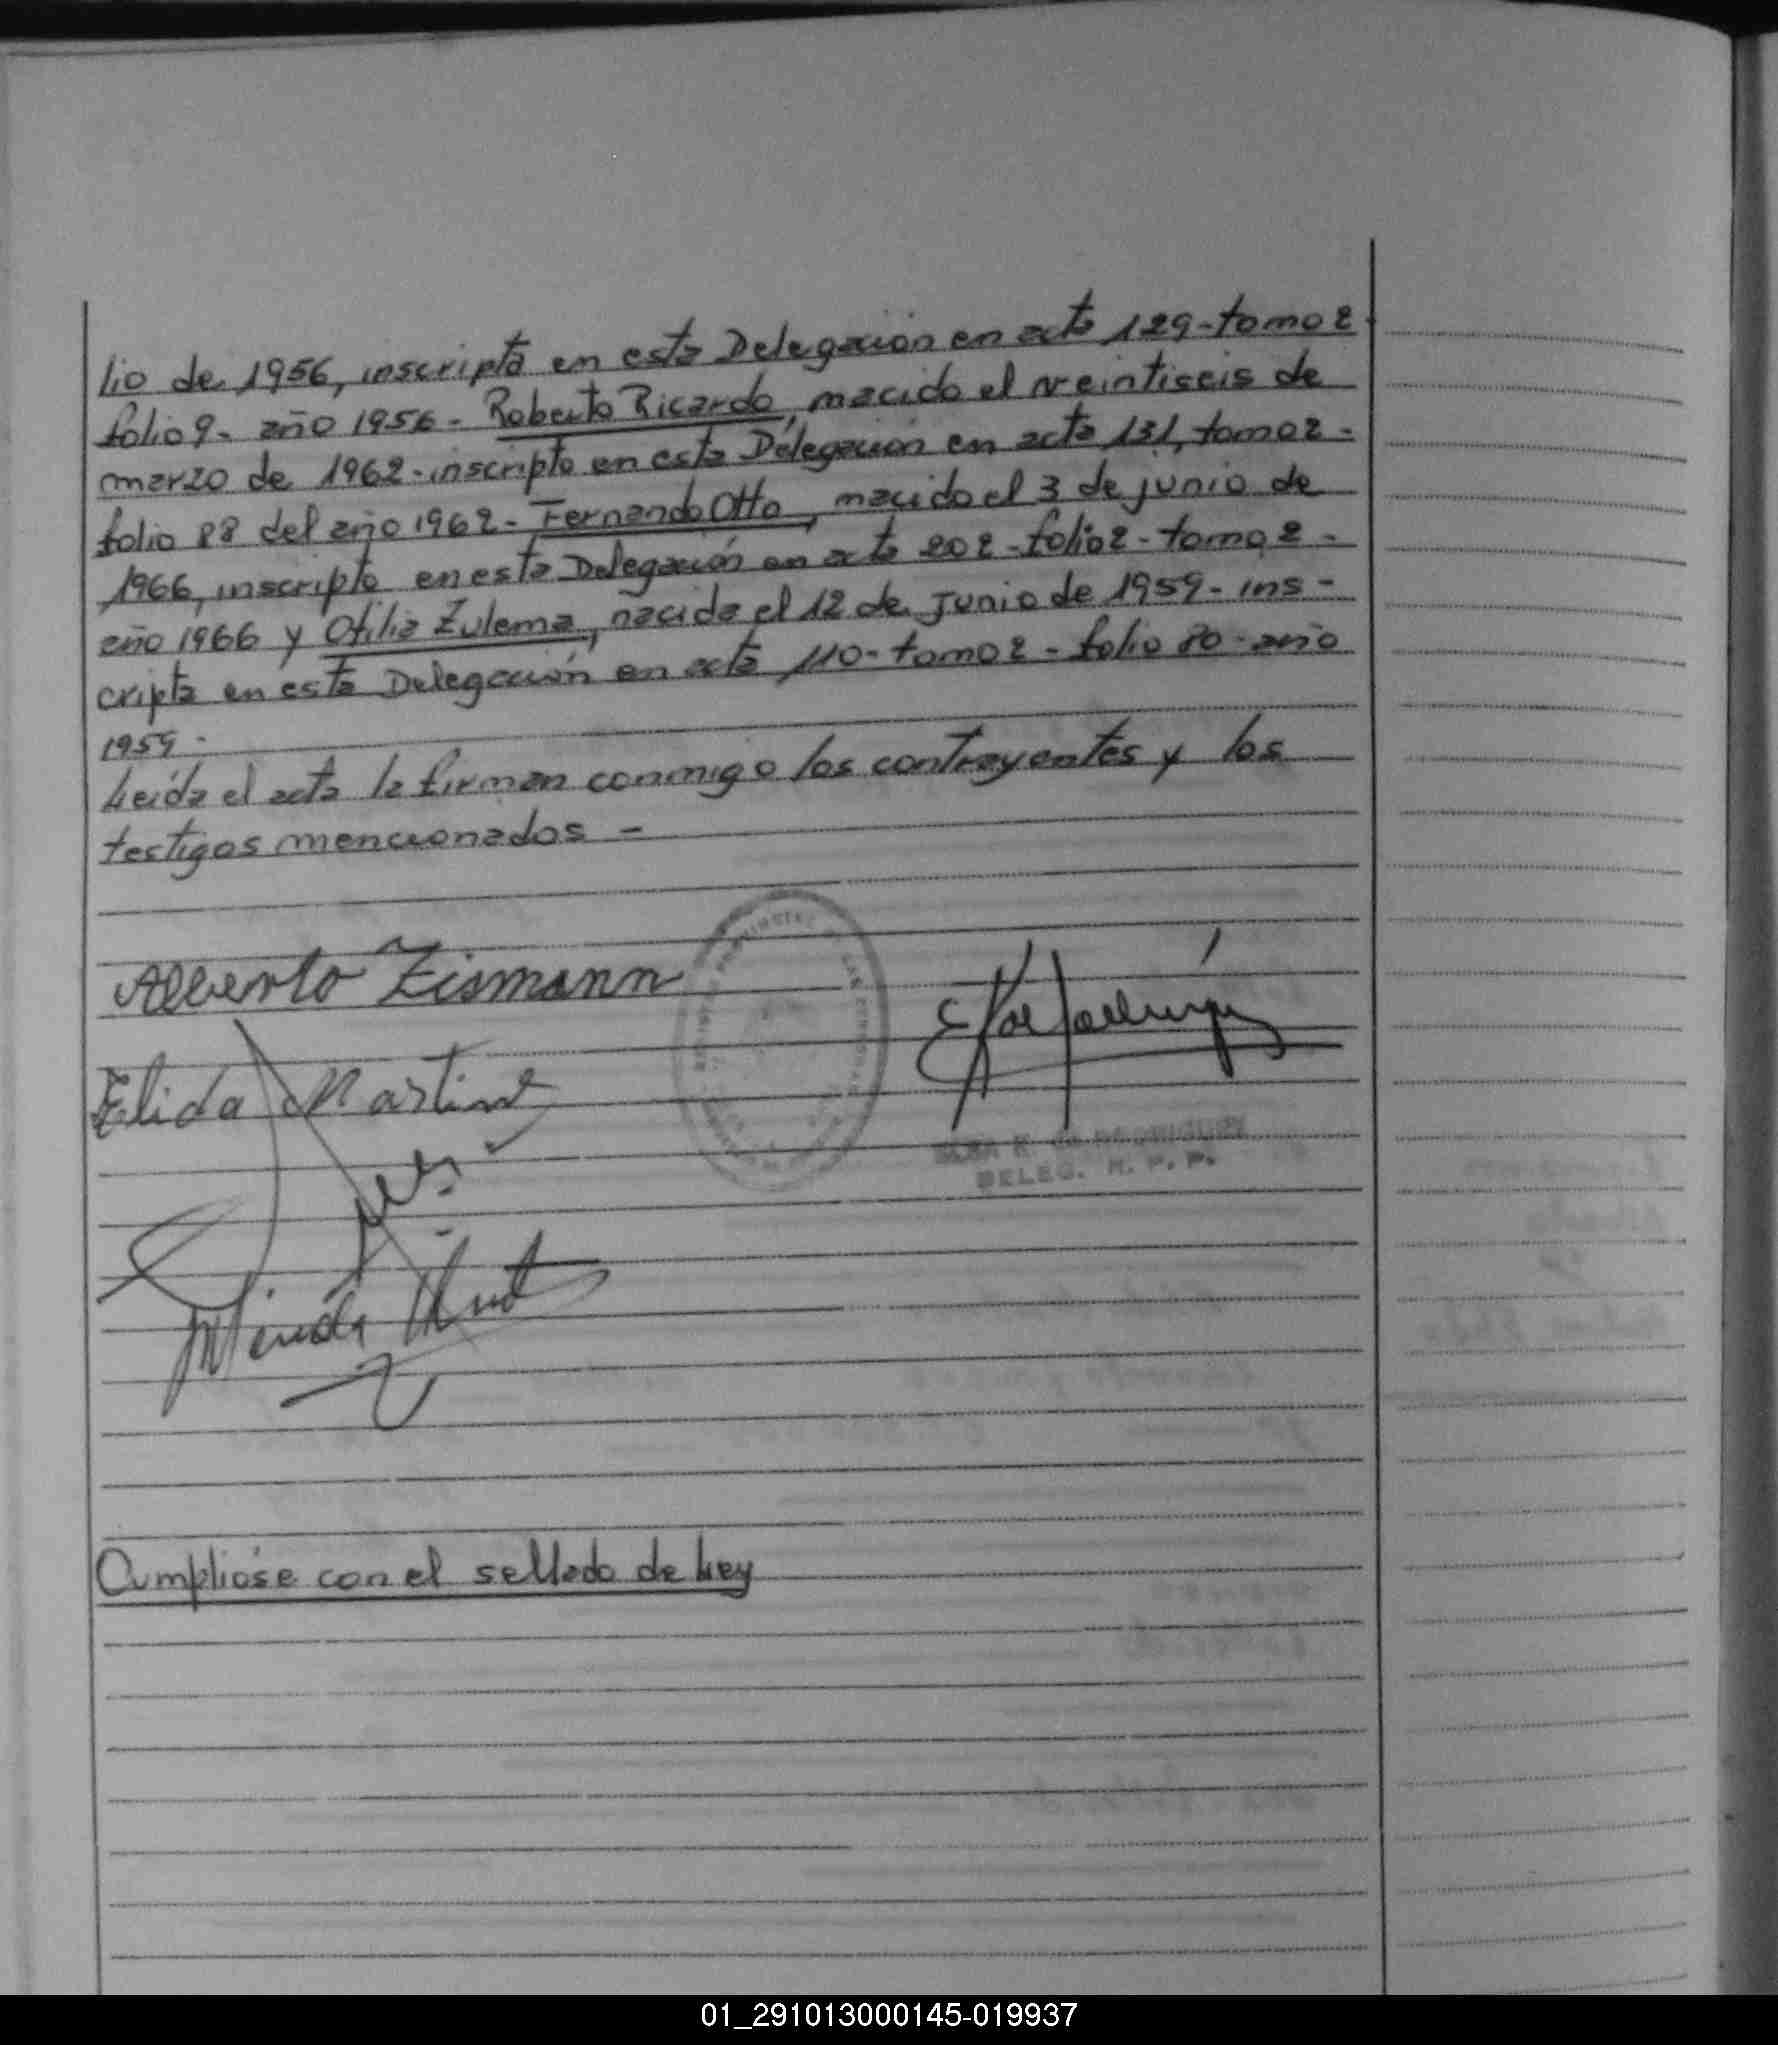 lio de 1956, inscripta en esta Delegación en acta 129-tomo 2
folio 9- año 1956- Roberto Ricardo, nacido el veintiseis de
marzo de 1962-inscripto en esta Delegación en acta 131, tomo 2-
folio 88 del año 1962- Fernando Otto, nacido el 3 de junio de
1966, inscripto en esta Delegación en acta 202-folio 2-tomo 2-
año 1966 y Otilia Zulema, nacida el 12 de junio de 1959- ins-
cripta en esta Delegación en acta 110-tomo 2-folio 80-año
1959-
Leída el acta la firman conmigo los contrayentes y los
testigos mencionados -
Alberto Zismann
Elida Martinez
DELEG. R. P. P.
Cumplióse con el sellado de Ley
01_291013000145-019937